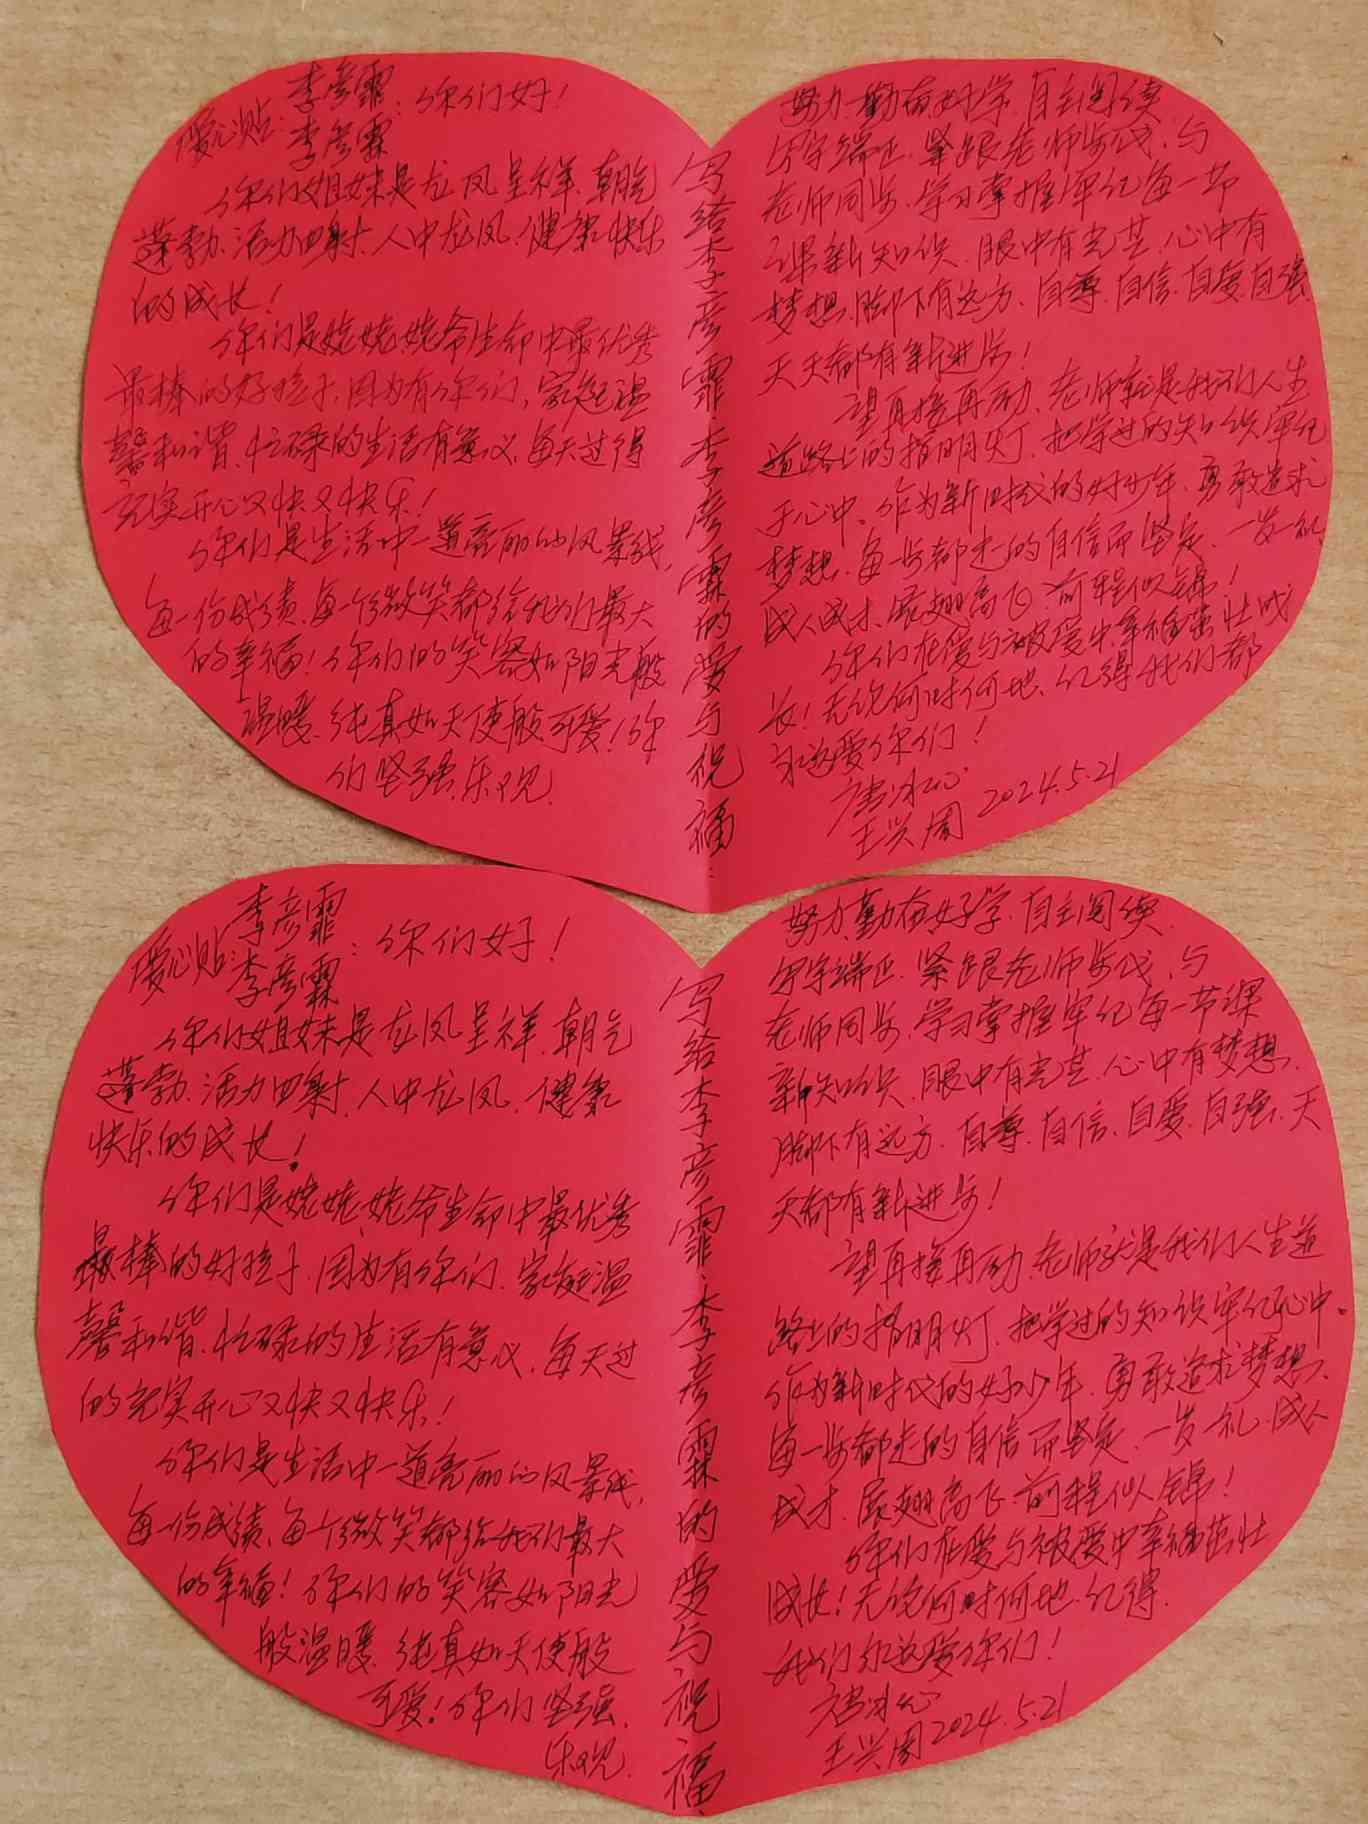 爱心贴:李彦霏:你们好!
李彦霖
你们姐妹是龙凤呈祥、朝气
蓬勃、活力四射、人中龙凤、健康快乐
的成长!
你们是姥姥、姥爷生命中最优秀
最棒的好孩子,因为有你们,家庭温
馨和谐、忙碌的生活有意义、每天过得
充实开心又快又快乐!
你们是生活中一道亮丽的风景线,
每一份成绩、每一个微笑都给我们最大
的幸福!你们的笑容如阳光般
温暖、纯真如天使般可爱!你
们坚强、乐观、
写给李彦霏李彦霖的爱与祝福:
努力、勤奋好学、自主阅读、
写字端正、紧跟老师步伐、与
老师同步、学习掌握牢记每一节
课新知识、眼中有光芒、心中有
梦想、脚下有远方、自尊、自信、自爱、自强、
天天都有新进步!
望再接再励、老师就是我们人生
道路上的指明灯、把学过的知识牢记
于心中、作为新时代的好少年、勇敢追求
梦想、每一步都走的自信而坚定、一岁一礼、
成人成才、展翅高飞、前程似锦!
你们在爱与被爱中幸福茁壮成
长!无论何时何地、记得我们都
永远爱你们!
唐冰心
王兴周 2024.5.21
爱心贴:李彦霏:你们好!
李彦霖
你们姐妹是龙凤呈祥、朝气
蓬勃、活力四射、人中龙凤、健康
快乐的成长!
你们是姥姥、姥爷生命中最优秀
最棒的好孩子、因为有你们、家庭温
馨和谐、忙碌的生活有意义、每天过
的充实开心又快又快乐!
你们是生活中一道亮丽的风景线,
每一份成绩、每一个微笑都给我们最大
的幸福!你们的笑容如阳光
般温暖、纯真如天使般
可爱!你们坚强、
乐观、
写给李彦霏、李彦霖的爱与祝福:
努力、勤奋好学、自主阅读、
写字端正、紧跟老师步伐、与
老师同步、学习掌握牢记每一节课
新知识、眼中有光芒、心中有梦想、
脚下有远方、自尊、自信、自爱、自强、天
天都有新进步!
望再接再励、老师就是我们人生道
路上的指明灯、把学过的知识牢记心中。
作为新时代的好少年、勇敢追求梦想、
每一步都走的自信而坚定、一岁一礼、成人
成才、展翅高飞、前程似锦!
你们在爱与被爱中幸福茁壮
成长!无论何时何地、记得、
我们永远爱你们!
唐冰心
王兴周2024.5.21